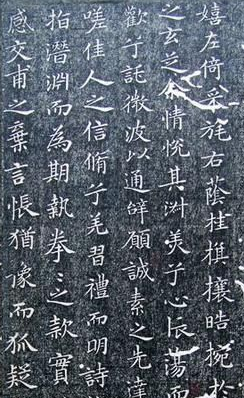 嬉左倚采旄右蔭桂棋攘皓捥於
之玄芝余情悅其淑美兮心振蕩而
歡兮託微波以通辭願誠素之先達
嗟佳人之信脩兮羌習禮而明詩
指潛淵而為期執拳〻之款實
感交甫之棄言悵猶豫而狐疑